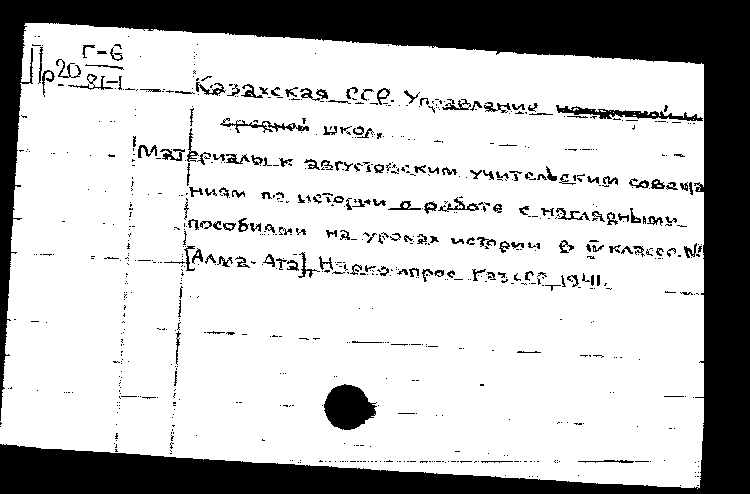 Пр20 Г-6
81-1
Казахская ССР. Управление начальной и
средней школ.
Материалы к августовским учительским совеща
ниям по истории о работе с наглядными
пособиями на уроках истории в IV классе. №
[Алма-Ата], Наркомпрос КазССР, 1941.